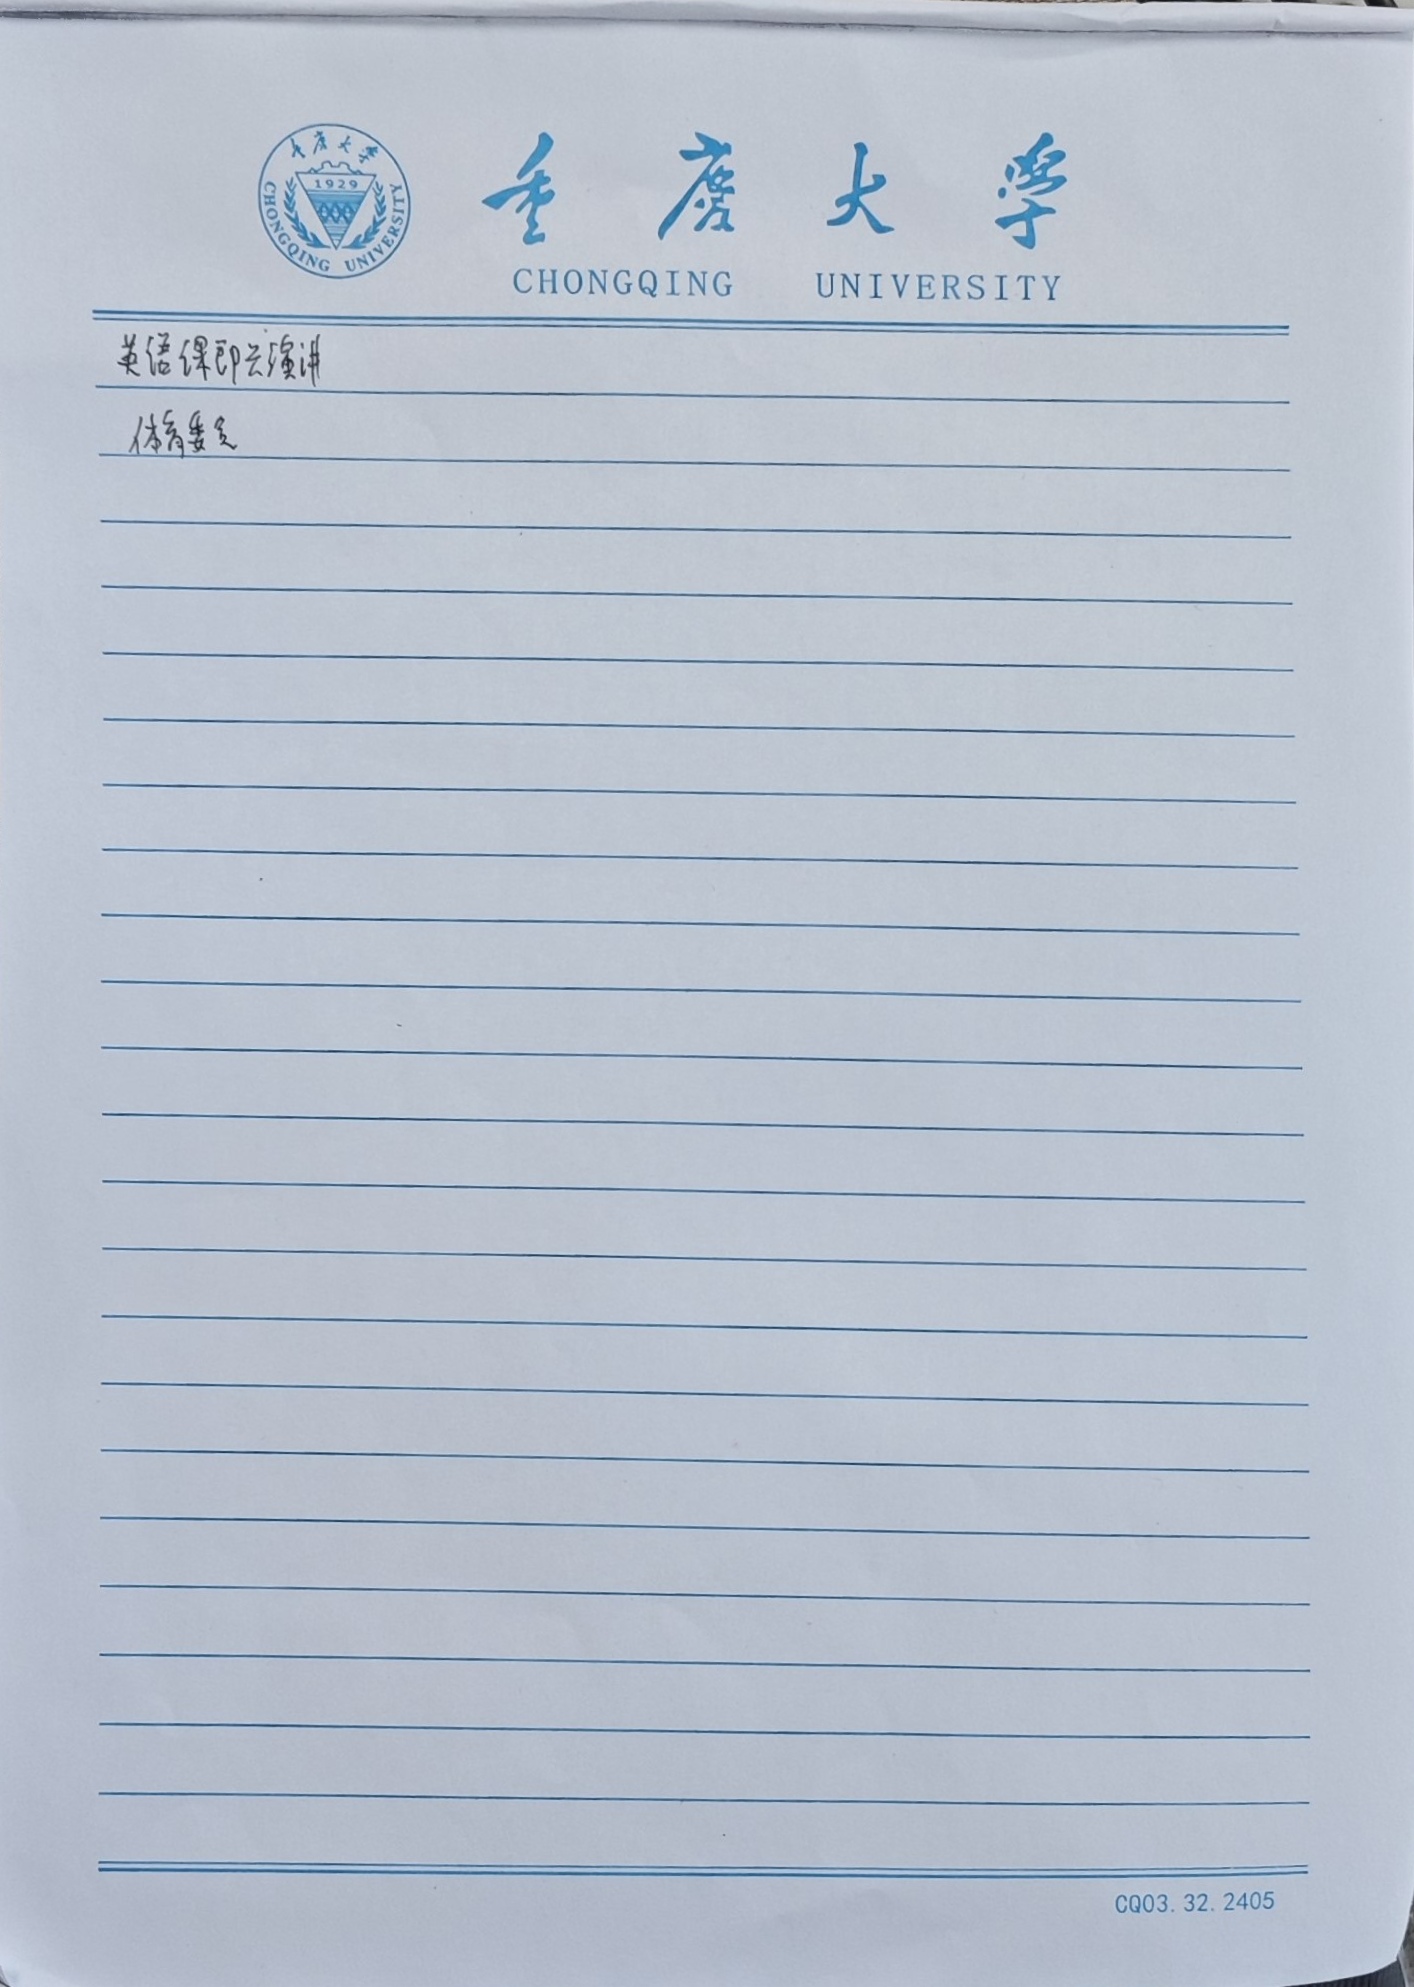 重庆大学
1929
CHONGQING UNIVERSITY
重庆大学
CHONGQING UNIVERSITY
英语课即兴演讲
体育委员
CQ03.32.2405